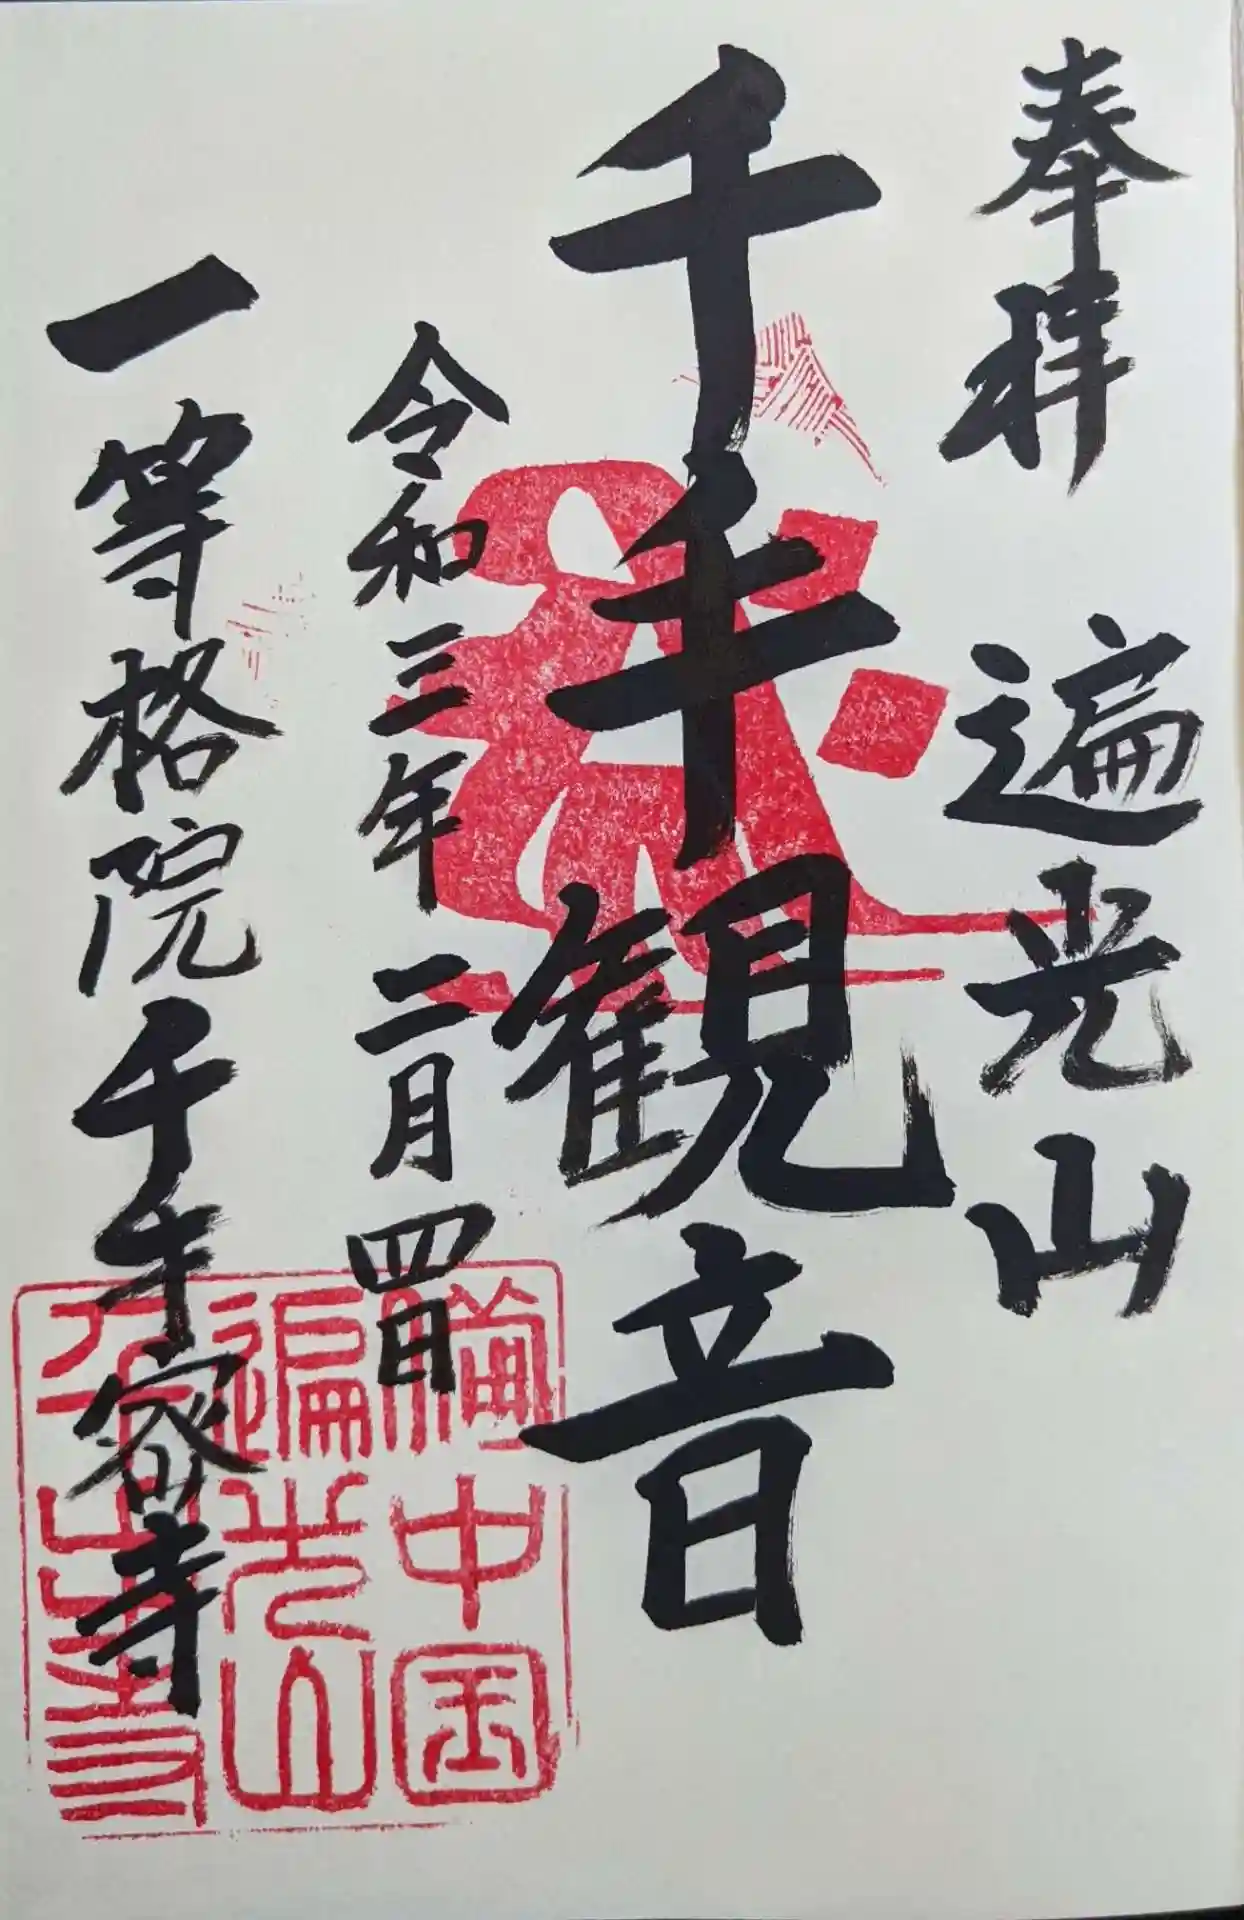 奉拝　遍光山
千手観音
令和三年二月四日
一等格院千手寺
備中国
遍光山